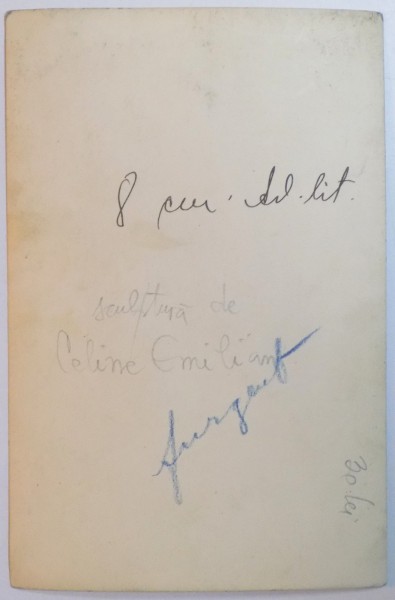 8 cur. Ad. lit.
sculptură de
Céline Emilian
furgent
30 lei